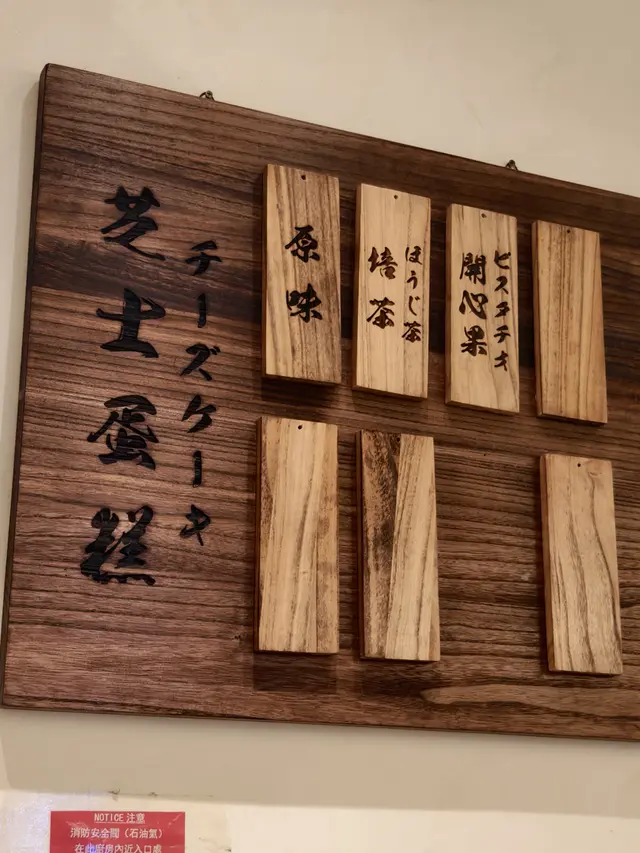 芝士蛋糕
チーズケーキ
原味
焙茶
ほうじ茶
開心果
ピスタチオ
NOTICE 注意
消防安全閥（石油氣）
在此廚房內近入口處